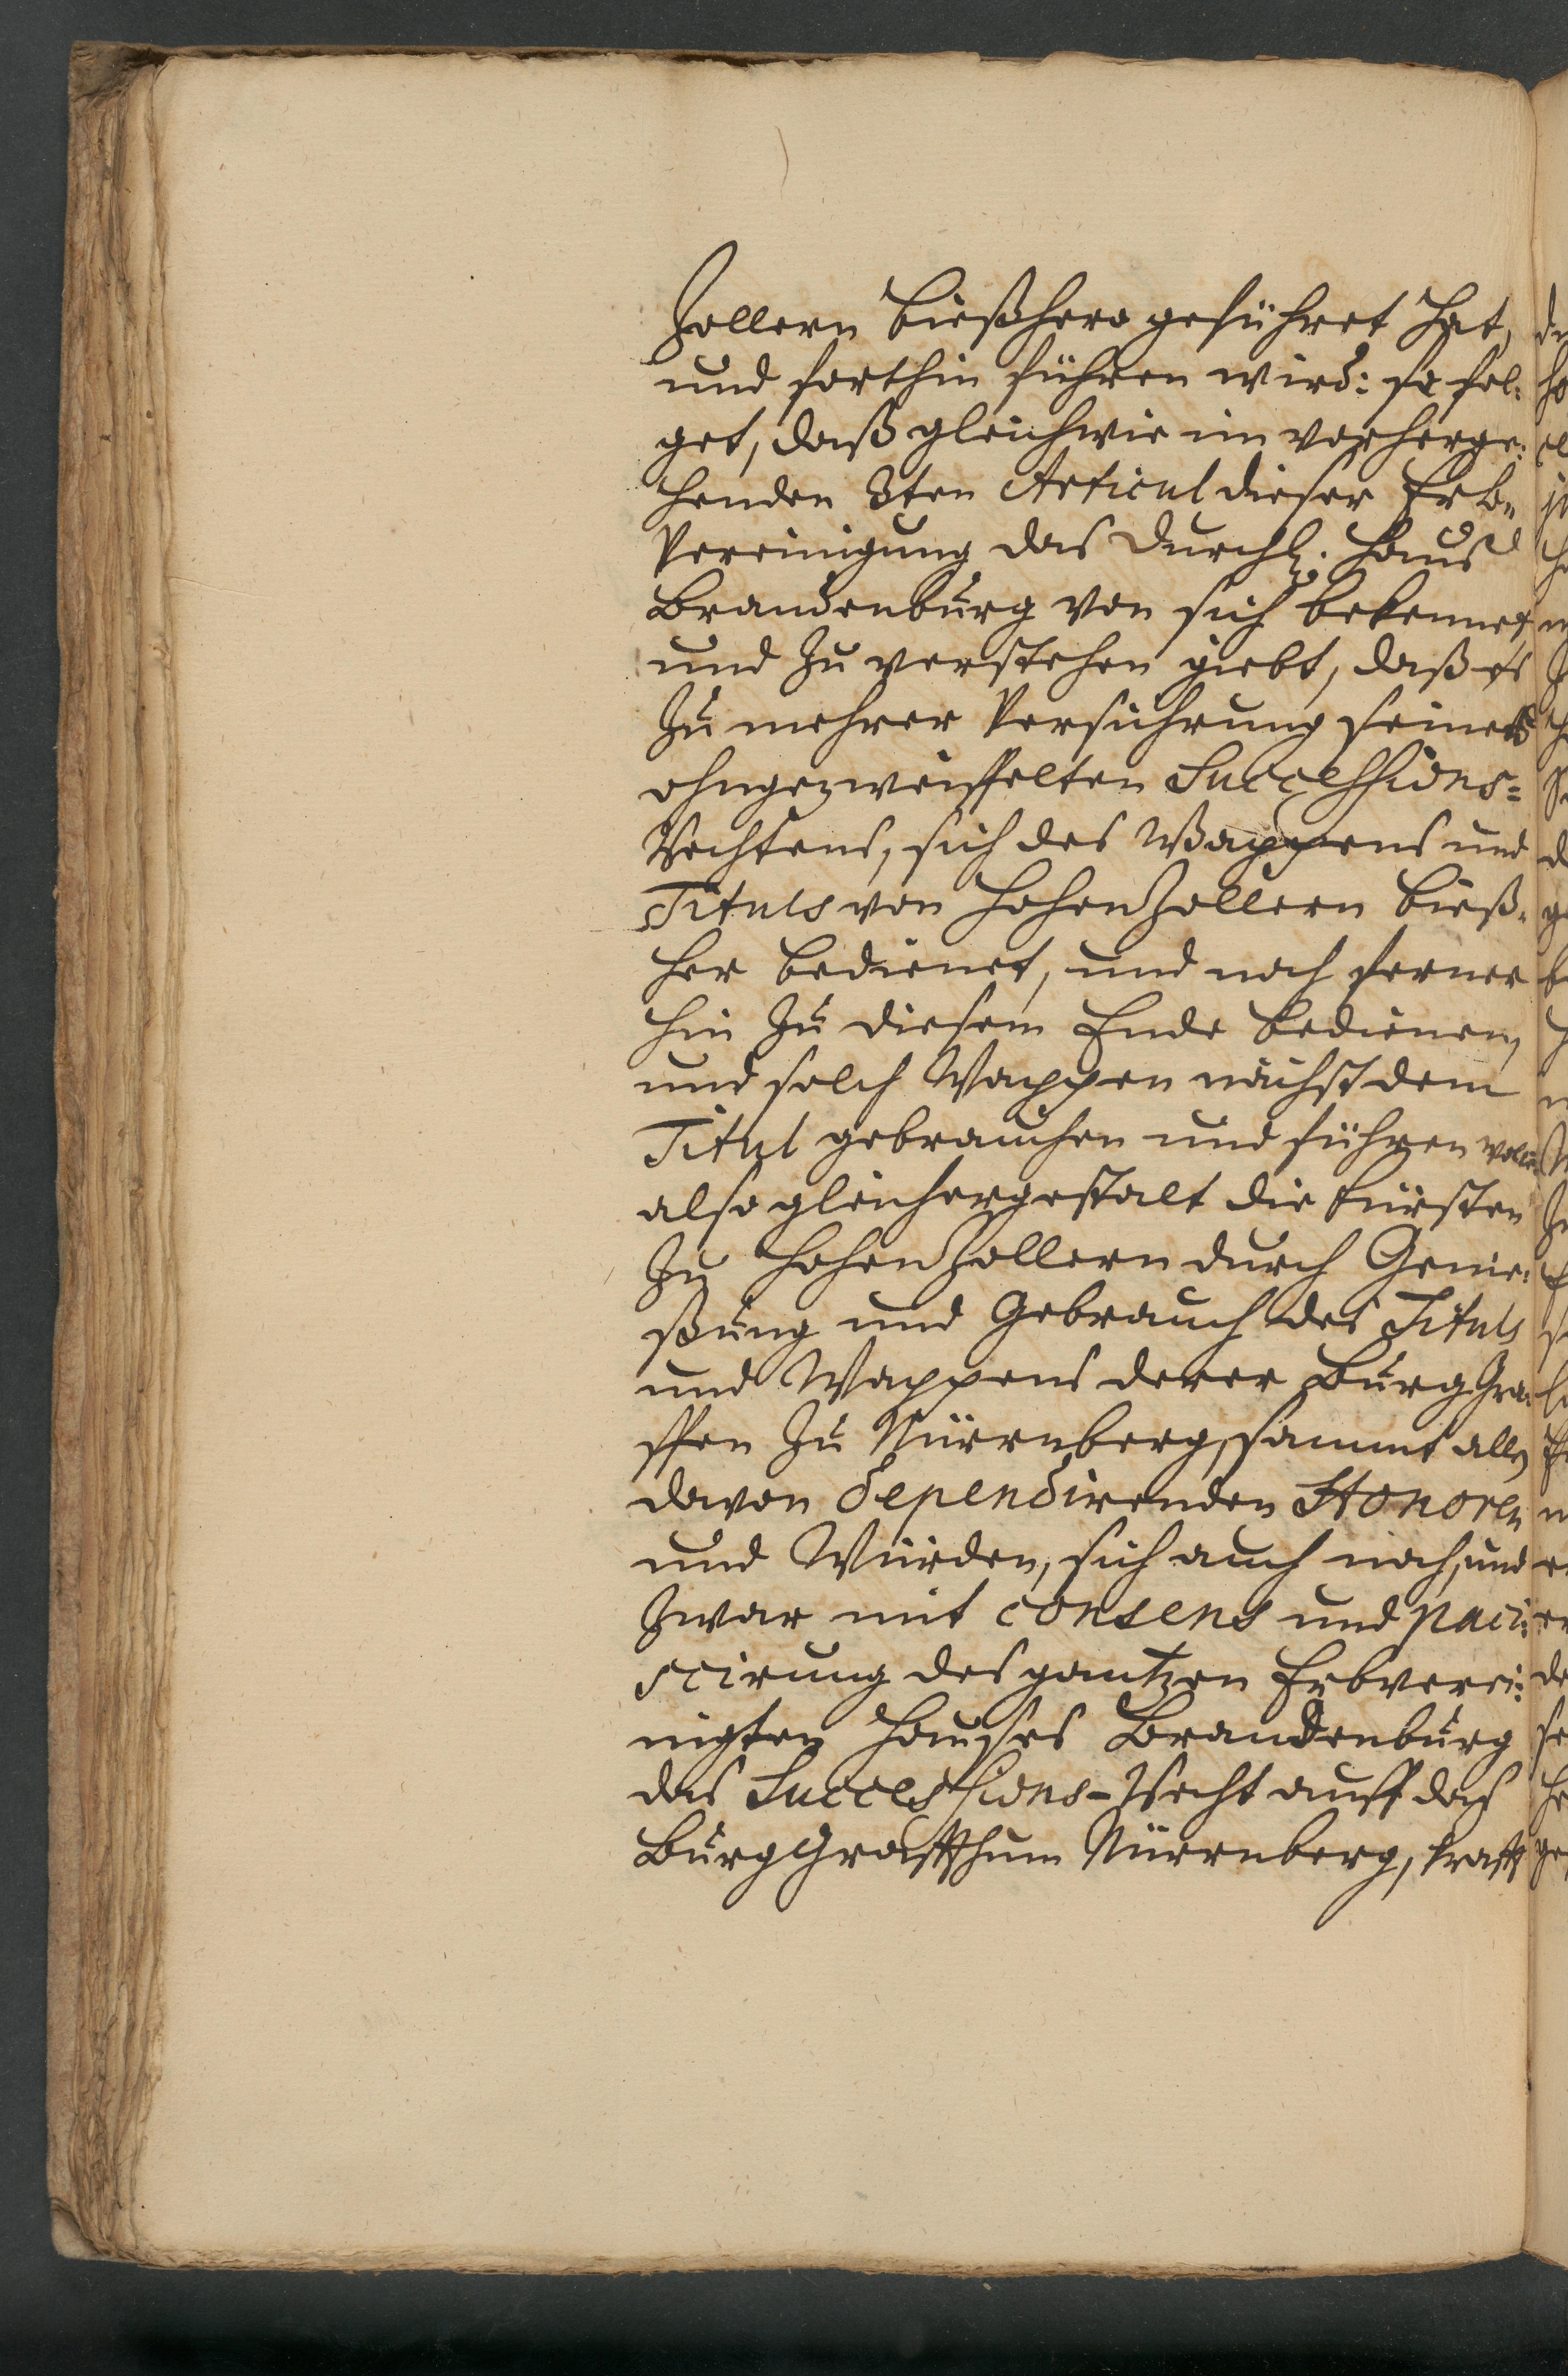 Zollern bießhero geführet hat,
und forthin führen wird: so fol:
get, daß gleichwie im vorherge:
henden 3ten Articul dieser Erb„
Vereinigung das Durchl. Hauß
Brandenburg von sich bekennet,
und zu verstehen giebt, daß es
zu mehrer Versicherung seines
ohngezweiffelten Successions=
Rechtens, sich des Wappens und
Tituls von HohenZollern bieß„
her bedienet, und noch ferner
hin zu diesem Ende bedienen,
und solch Wappen nächst dem
Titul gebrauchen und führen wolle,
also gleichergestalt die Fürsten
zu HohenZollern durch Genie:
ßung und Gebrauch des Tituls
und Wappens derer BurgGra:
ffen zu Nürrnberg, sammt allen
davon dependirenden Honoren
und Würden, sich auch noch, und
zwar mit consens und paci:
scirung des gantzen Erbverei:
nigten Hauses Brandenburg
das Successions-Recht auff das
BurgGraffthum Nürrnberg, krafft